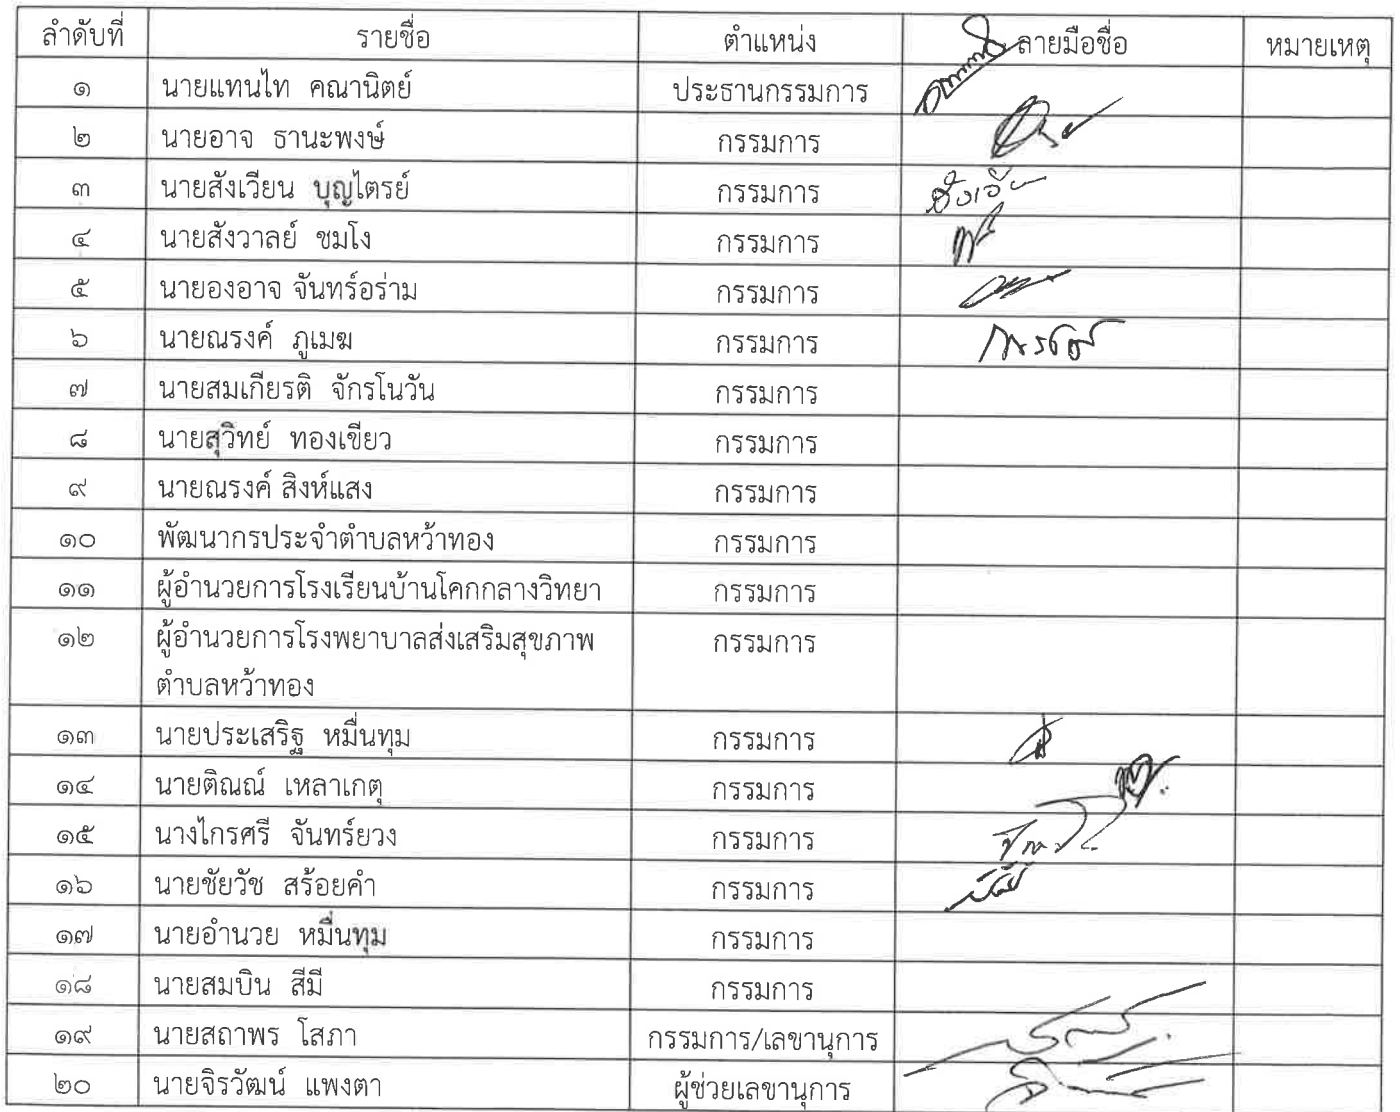 ลำดับที่ รายชื่อ ตำแหน่ง ลายมือชื่อ หมายเหตุ
๑ นายแทนไท คณานิตย์ ประธานกรรมการ
๒ นายอาจ ธานะพงษ์ กรรมการ
๓ นายสังเวียน บุญไตรย์ กรรมการ
๔ นายสังวาลย์ ชมโง กรรมการ
๕ นายองอาจ จันทร์อร่าม กรรมการ
๖ นายณรงค์ ภูเมฆ กรรมการ
๗ นายสมเกียรติ จักรโนวัน กรรมการ
๘ นายสุวิทย์ ทองเขียว กรรมการ
๙ นายณรงค์ สิงห์แสง กรรมการ
๑๐ พัฒนากรประจำตำบลหว้าทอง กรรมการ
๑๑ ผู้อำนวยการโรงเรียนบ้านโคกกลางวิทยา กรรมการ
๑๒ ผู้อำนวยการโรงพยาบาลส่งเสริมสุขภาพ กรรมการ
ตำบลหว้าทอง
๑๓ นายประเสริฐ หมื่นทุม กรรมการ
๑๔ นายติณณ์ เหลาเกตุ กรรมการ
๑๕ นางไกรศรี จันทร์ยวง กรรมการ
๑๖ นายชัยวัช สร้อยคำ กรรมการ
๑๗ นายอำนวย หมื่นทุม กรรมการ
๑๘ นายสมบิน สีมี กรรมการ
๑๙ นายสถาพร โสภา กรรมการ/เลขานุการ
๒๐ นายจิรวัฒน์ แพงตา ผู้ช่วยเลขานุการ